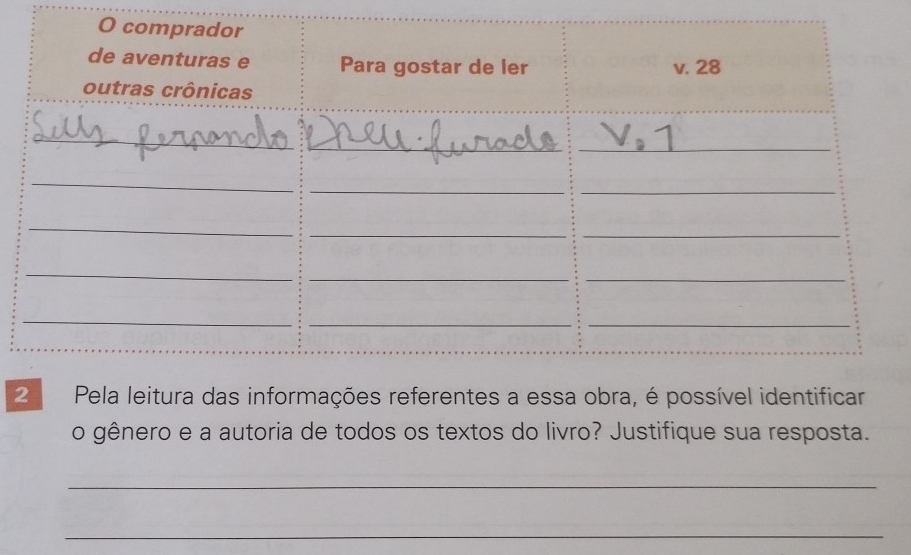 O comprador
de aventuras e
outras crônicas
Para gostar de ler
v. 28
fernando
furado
V. 1
2 Pela leitura das informações referentes a essa obra, é possível identificar
o gênero e a autoria de todos os textos do livro? Justifique sua resposta.